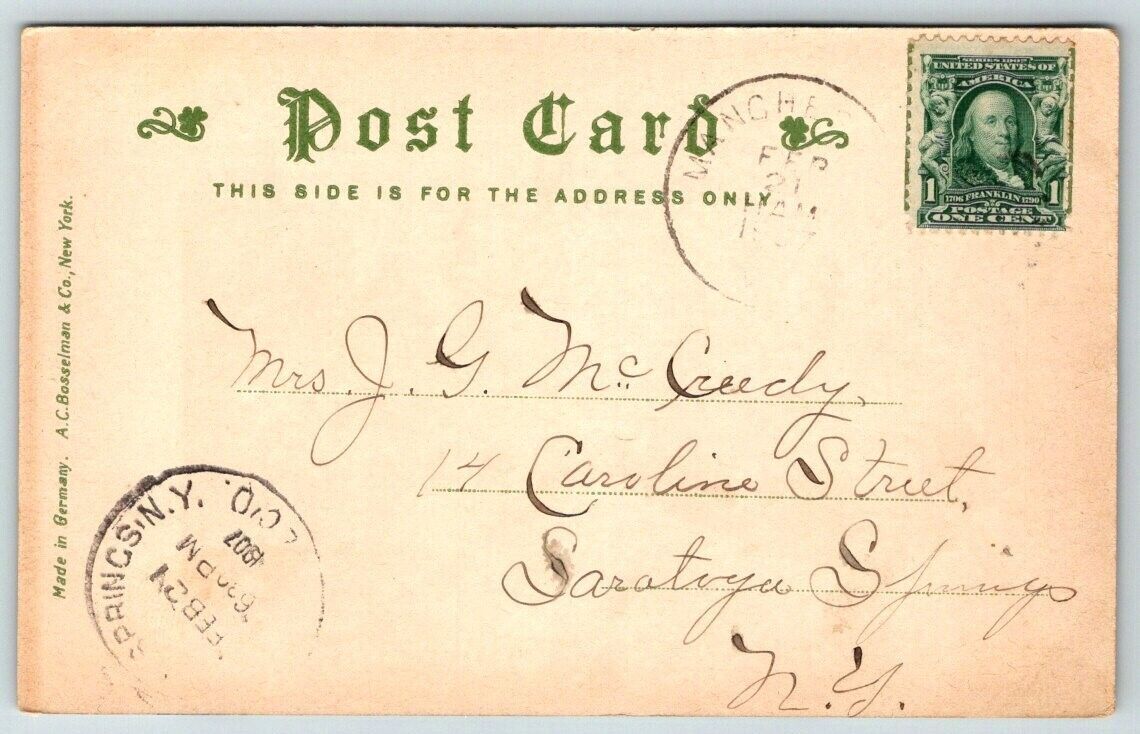 Post Card
THIS SIDE IS FOR THE ADDRESS ONLY.
MANCHES
FEB
21
AM
1907
SERIES 1902
UNITED STATES OF
AMERICA
1 1
1706 FRANKLIN 1790
POSTAGE
ONE CENT
Made in Germany. A.C. Bosselman & Co., New York.
Mrs. J. G. McCreedy,
14 Caroline Street,
Saratoga Springs
N.Y.
SPRINGS, N.Y. REC'D.
FEB 21
630 PM
1907